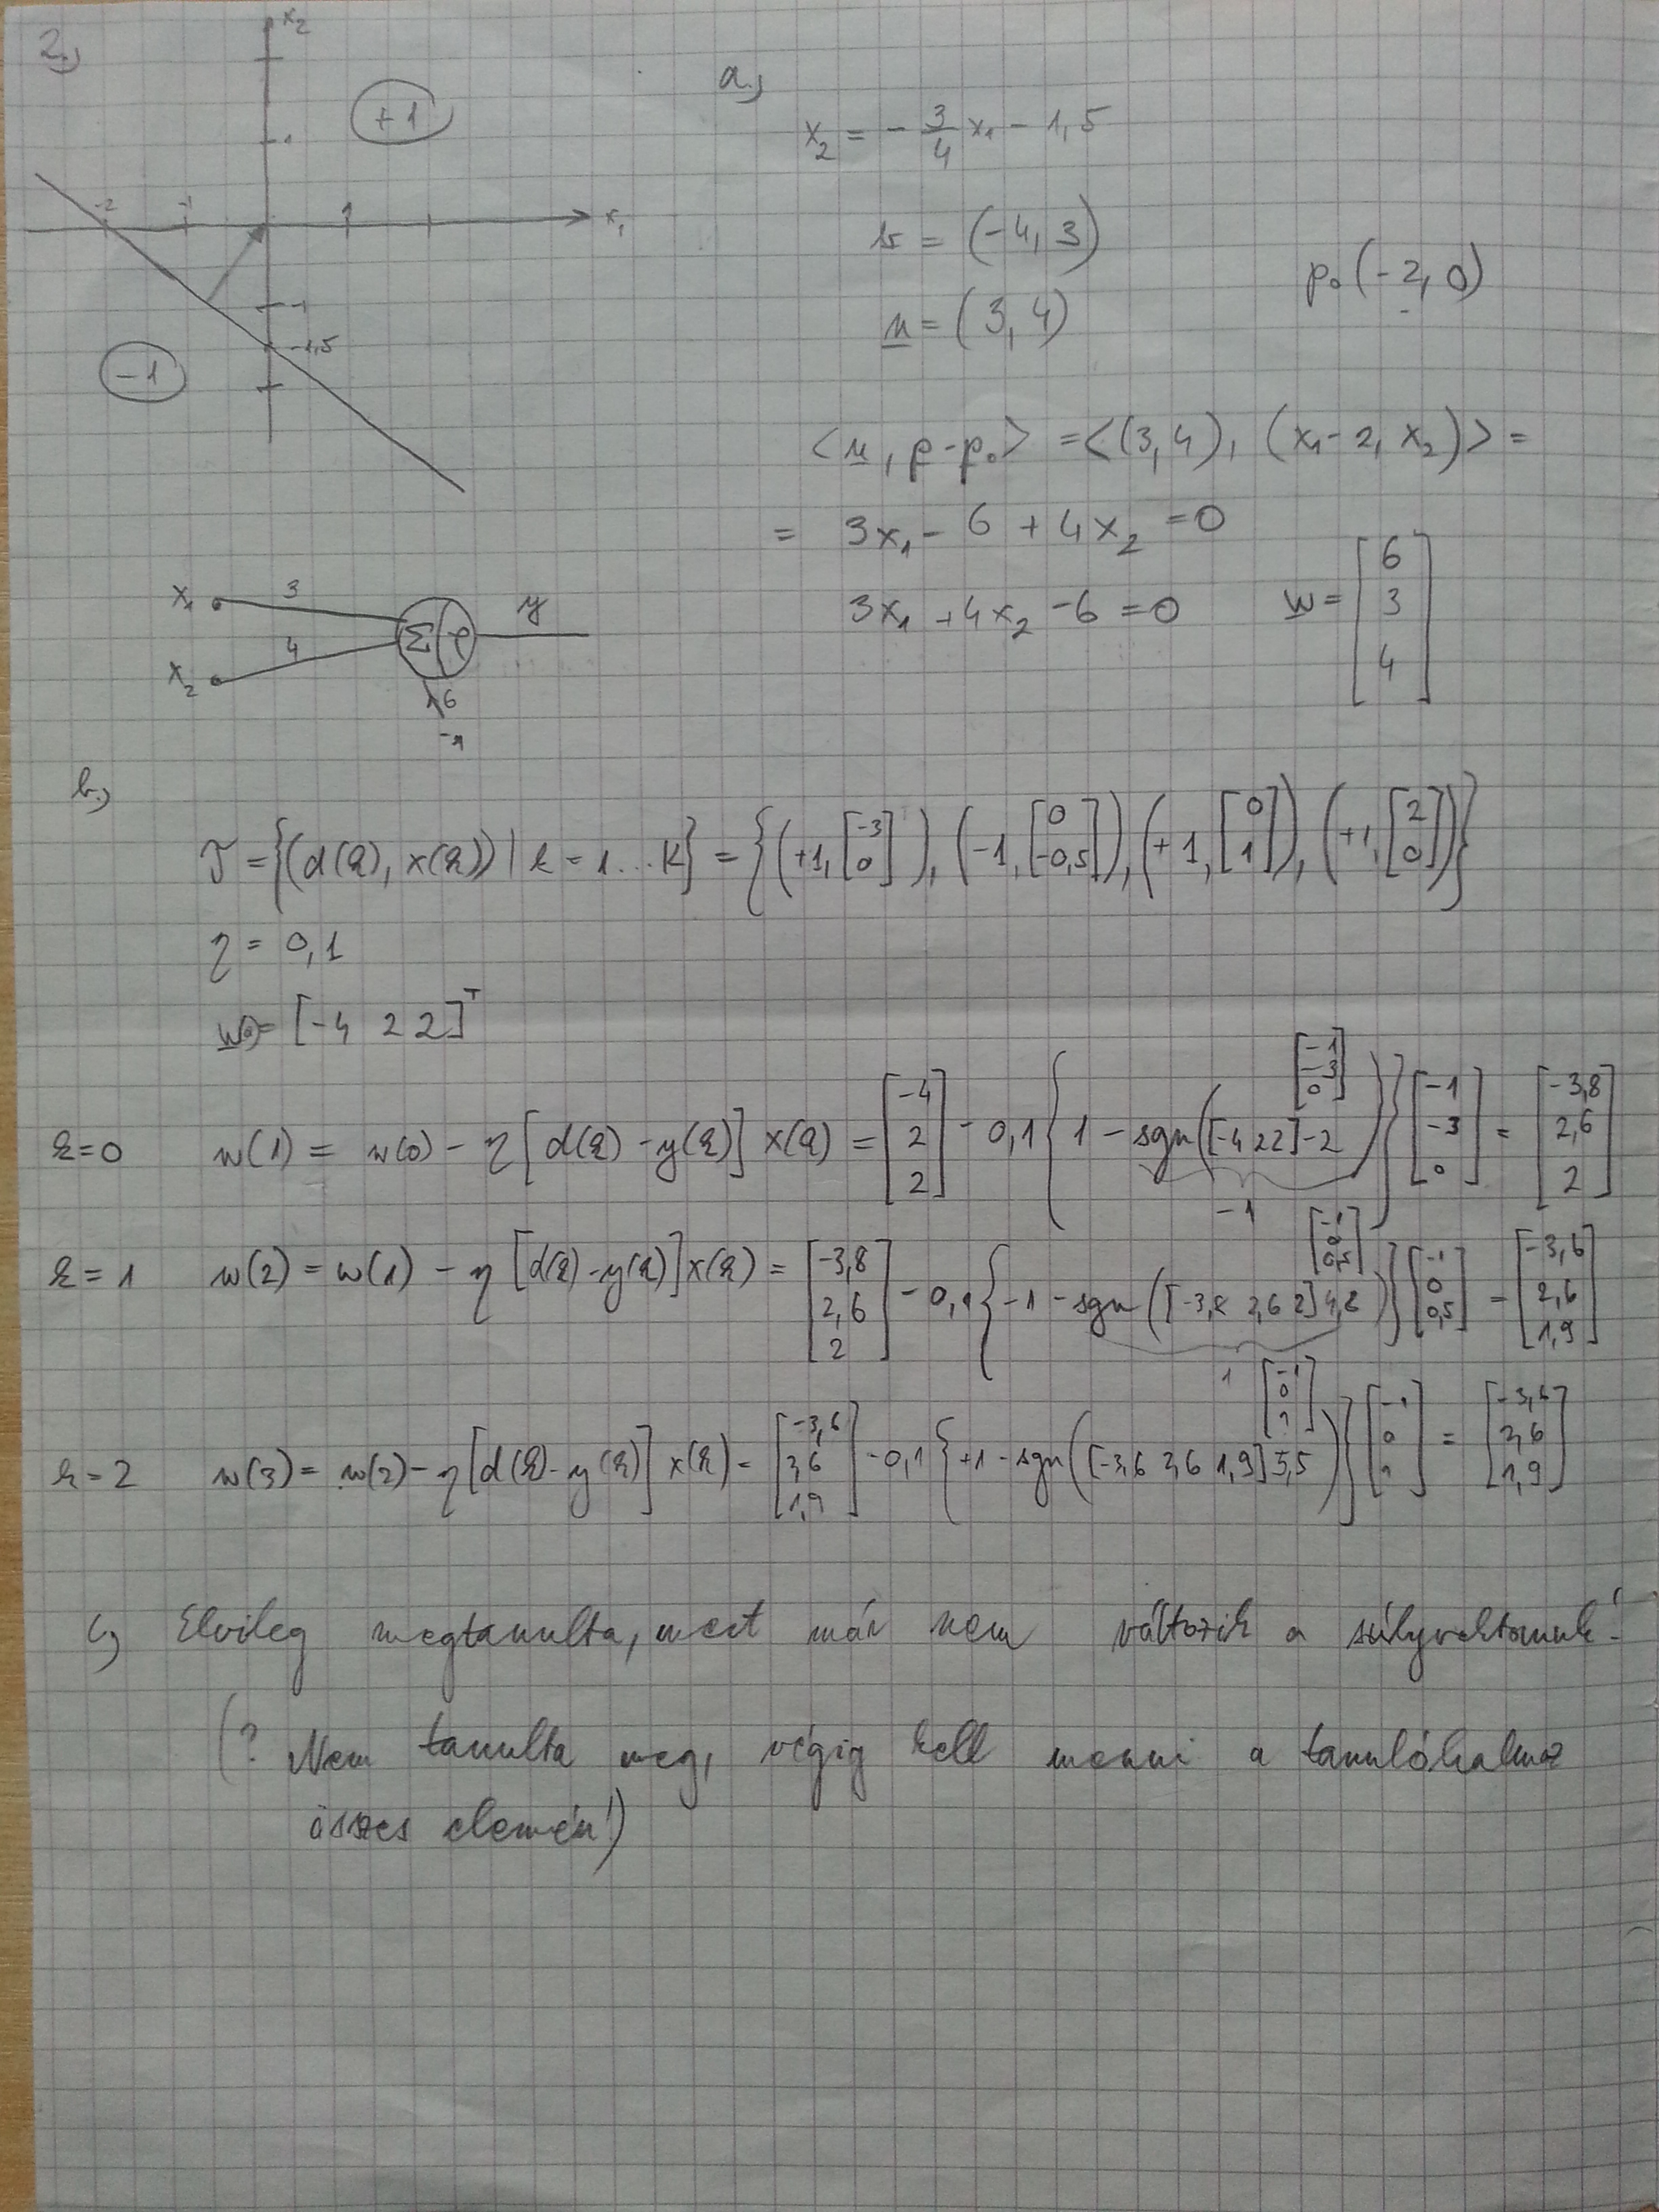 2.)
x₂
+1
a.)
x₂ = - 3/4 x₁ - 1,5
-2 -1 1 x₁
v = (-4, 3)
p₀(-2, 0)
n = (3, 4)
-1
-1,5
-1
<n, p-p₀> = <(3,4), (x₁-2, x₂)> =
= 3x₁ - 6 + 4x₂ = 0
3x₁ + 4x₂ - 6 = 0 w = [6 3 4]
x₁ 3 Σ φ y
x₂ 4
6
-1
b.)
T = {(d(k), x(k)) | k = 1...K} = {(+1, [-3 0]), (-1, [0 -0,5]), (+1, [0 1]), (+1, [2 0])}
η = 0,1
w(0) = [-4 2 2]ᵀ
k=0 w(1) = w(0) - η[d(k) - y(k)] x(k) = [-4 2 2] - 0,1{1 - sgn([-4 2 2] [-1 -3 0] -2)} [-1 -3 0] = [-3,8 2,6 2]
-1
k=1 w(2) = w(1) - η[d(k) - y(k)] x(k) = [-3,8 2,6 2] - 0,1{-1 - sgn([-3,8 2,6 2] [-1 0 0,5] 4,8)} [-1 0 0,5] = [-3,6 2,6 1,9]
1
k=2 w(3) = w(2) - η[d(k) - y(k)] x(k) = [-3,6 2,6 1,9] - 0,1{+1 - sgn([-3,6 2,6 1,9] [-1 0 1] 5,5)} [-1 0 1] = [-3,6 2,6 1,9]
c) Elvileg megtanulta, mert már nem változik a súlyvektorunk!
(? Nem tanulta meg, végig kell menni a tanulóhalmaz
összes elemén!)